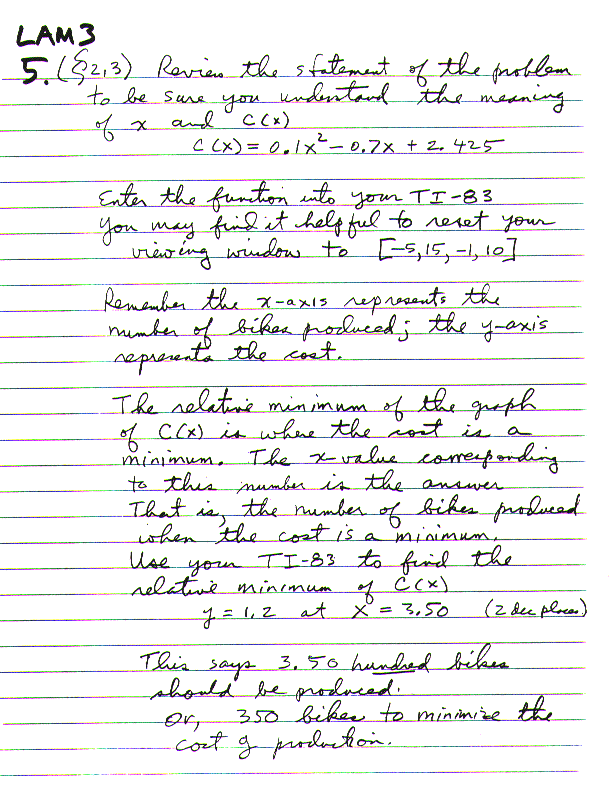 LAM 3
5. (§2,3) Review the statement of the problem
to be sure you understand the meaning
of x and C(x)
C(x) = 0.1x² - 0.7x + 2.425
Enter the function into your TI-83
You may find it helpful to reset your
viewing window to [-5,15,-1,10]
Remember the x-axis represents the
number of bikes produced; the y-axis
represents the cost.
The relative minimum of the graph
of C(x) is where the cost is a
minimum. The x-value corresponding
to this number is the answer
That is, the number of bikes produced
when the cost is a minimum.
Use your TI-83 to find the
relative minimum of C(x)
y = 1.2 at x = 3.50 (2 dec places)
This says 3.50 hundred bikes
should be produced.
Or, 350 bikes to minimize the
cost of production.